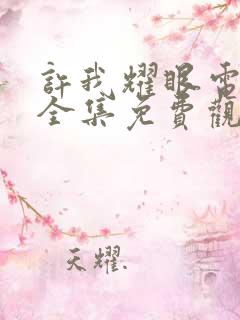 許我耀眼電
全集免費觀
天耀.